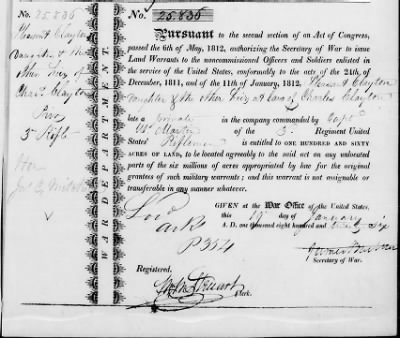 No. 25.836
Hannah Clayton
daughter & the
other heirs of
Charls Clayton
3d Rifle
WAR DEPARTMENT.
No. 25.836
Pursuant to the second section of an Act of Congress,
passed the 6th of May, 1812, authorizing the Secretary of War to issue
Land Warrants to the noncommissioned Officers and Soldiers enlisted
in the service of the United States, conformably to the acts of the 24th of
December, 1811, and of the 11th of January, 1812, Hannah Clayton
daughter & the other heirs at law of Charles Clayton
late a private in the company commanded by Capt
of the 3d Regiment United
States' Riflemen is entitled to ONE HUNDRED AND SIXTY
ACRES OF LAND, to be located agreeably to the said act on any unlocated
part of the six millions of acres appropriated by law for the original
grantees of such military warrants; and this warrant is not assignable or
transferable in any manner whatever.
GIVEN at the War Office of the United States,
this 19 day of January
A. D. one thousand eight hundred and twenty six
Secretary of War.
Registered.
Clerk.